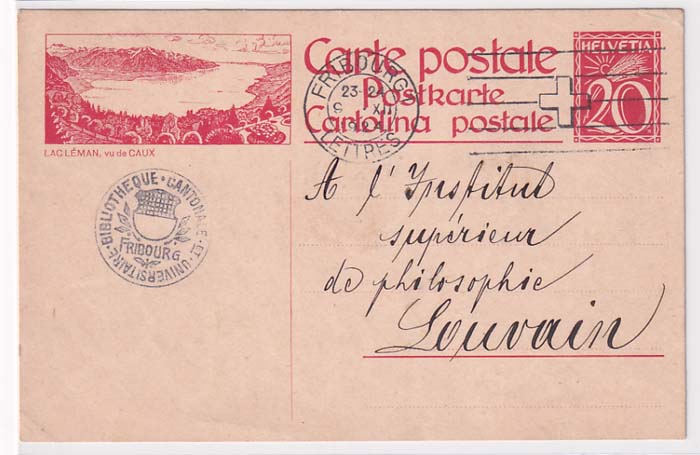 LAC LÉMAN, vu de CAUX
Carte postale
Postkarte
Cartolina postale
HELVETIA
20
FRIBOURG
23-24
LETTRES
BIBLIOTHEQUE • CANTONALE • ET • UNIVERSITAIRE •
FRIBOURG
A l'Institut
supérieur
de philosophie
Louvain